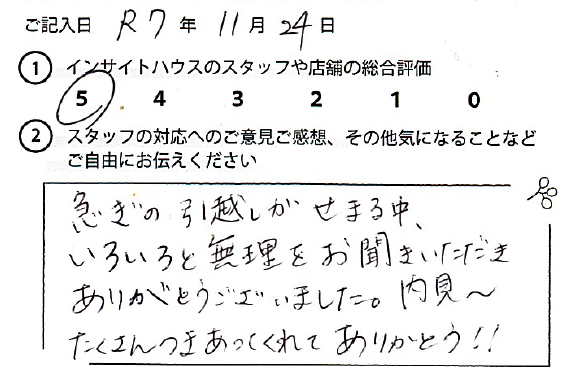 ご記入日 R7年 11月24日
① インサイトハウスのスタッフや店舗の総合評価
5 4 3 2 1 0
② スタッフの対応へのご意見ご感想、その他気になることなど
ご自由にお伝えください
急ぎの引越しがせまる中、
いろいろと無理をお聞きいただき
ありがとうございました。内見〜
たくさんつきあってくれてありがとう!!